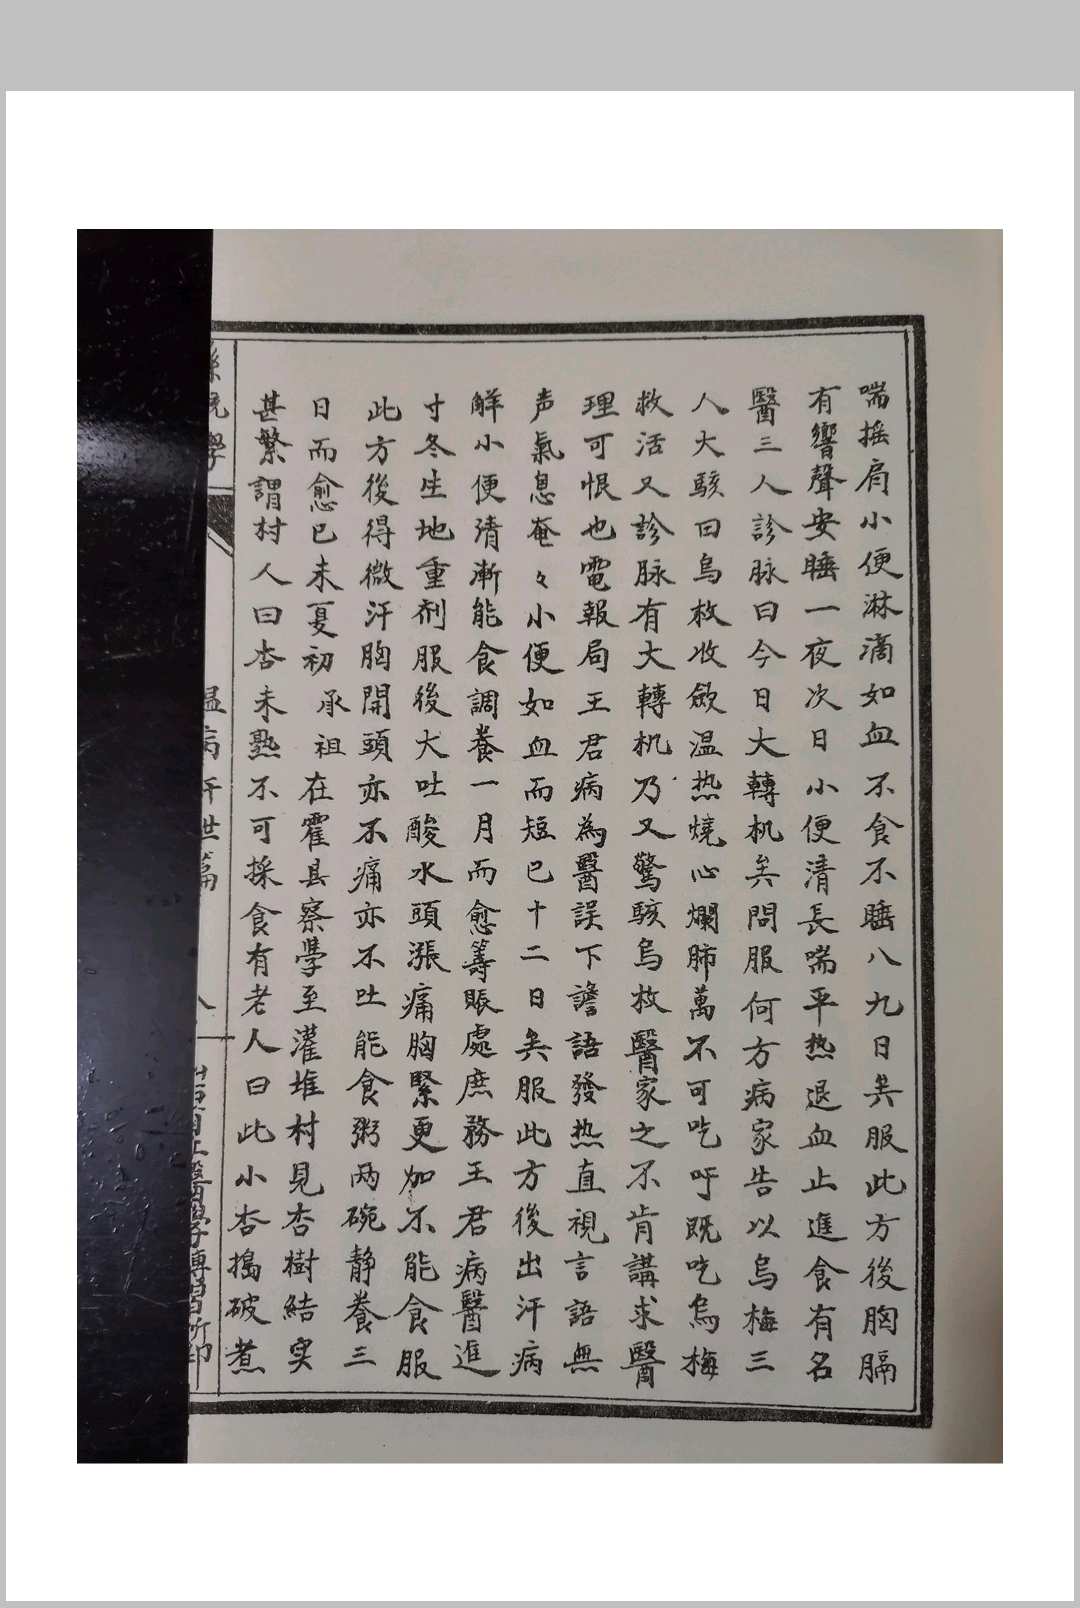 喘摇肩小便淋滴如血不食不睡八九日矣服此方後胸膈
有響聲安睡一夜次日小便清長喘平热退血止進食有名
醫三人診脉曰今日大轉机矣問服何方病家告以烏梅三
人大駭曰烏枚收斂温热燒心爛肺萬不可吃吁既吃烏梅
救活又診脉有大轉机乃又驚駭烏枚醫家之不肯講求醫
理可恨也電報局王君病為醫誤下譫語發热直視言語無
声氣息奄々小便如血而短已十二日矣服此方後出汗病
解小便清漸能食調養一月而愈籌賬處庶務王君病醫進
寸冬生地重剂服後大吐酸水頭漲痛胸緊更加不能食服
此方後得微汗胸開頭亦不痛亦不吐能食粥两碗静養三
日而愈已未夏初承祖在霍县察學至灌堆村見杏樹結实
甚繁謂村人曰杏未熟不可採食有老人曰此小杏搗破煮
温病
八